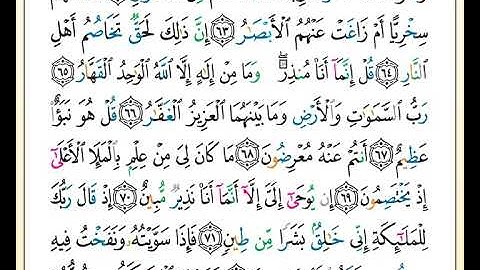 سِخْرِيًّا أَمْ زَاغَتْ عَنْهُمُ ٱلْأَبْصَـٰرُ ٦٣ إِنَّ ذَٰلِكَ لَحَقٌّ تَخَاصُمُ أَهْلِ
ٱلنَّارِ ٦٤ قُلْ إِنَّمَآ أَنَا۠ مُنذِرٌ ۖ وَمَا مِنْ إِلَـٰهٍ إِلَّا ٱللَّهُ ٱلْوَٰحِدُ ٱلْقَهَّارُ ٦٥
رَبُّ ٱلسَّمَـٰوَٰتِ وَٱلْأَرْضِ وَمَا بَيْنَهُمَا ٱلْعَزِيزُ ٱلْغَفَّـٰرُ ٦٦ قُلْ هُوَ نَبَؤٌا۟
عَظِيمٌ ٦٧ أَنتُمْ عَنْهُ مُعْرِضُونَ ٦٨ مَا كَانَ لِىَ مِنْ عِلْمٍۭ بِٱلْمَلَإِ ٱلْأَعْلَىٰٓ
إِذْ يَخْتَصِمُونَ ٦٩ إِن يُوحَىٰٓ إِلَىَّ إِلَّآ أَنَّمَآ أَنَا۠ نَذِيرٌ مُّبِينٌ ٧٠ إِذْ قَالَ رَبُّكَ
لِلْمَلَـٰٓئِكَةِ إِنِّى خَـٰلِقٌۢ بَشَرًا مِّن طِينٍ ٧١ فَإِذَا سَوَّيْتُهُۥ وَنَفَخْتُ فِيهِ